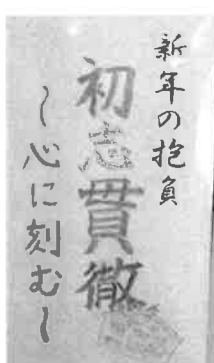 新年の抱負
初志貫徹
～心に刻む～